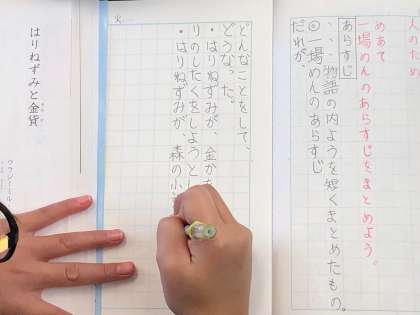 人のため
めあて
一場めんのあらすじをまとめよう。
あらすじ
・・・物語の内ようを短くまとめたもの。
◎一場めんのあらすじ
だれが、
どんなことをして、
どうなった。
・はりねずみが、金か
りのしたくをしようと
・はりねずみが、森の小
火
はりねずみと金貨